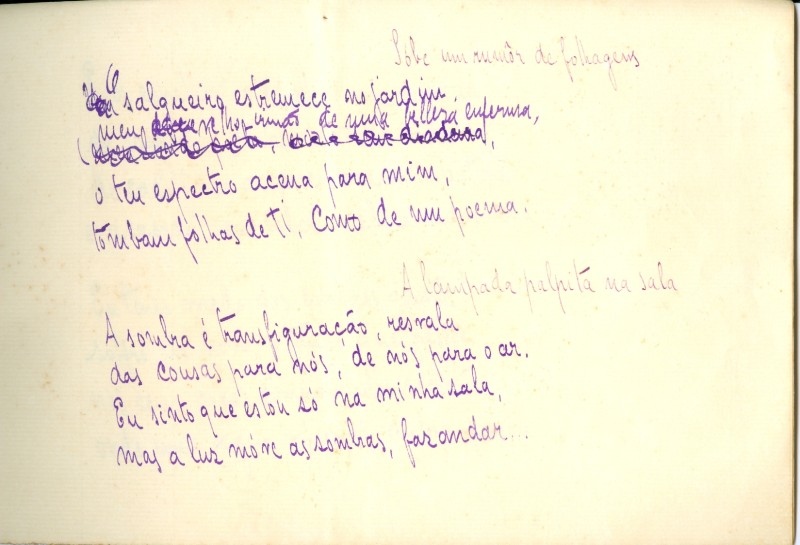 Sóbe um rumôr de folhagens
O salgueiro estremece no jardim
meu irmão de uma belleza enferma,
o teu espectro acena para mim,
tômbam folhas de ti. Como de um poema.
A lampada palpita na sala
A sombra é transfiguração, resvala
das cousas para nós, de nós para o ar.
Eu sinto que estou só na minha sala,
mas a luz móve as sombras, faz andar...